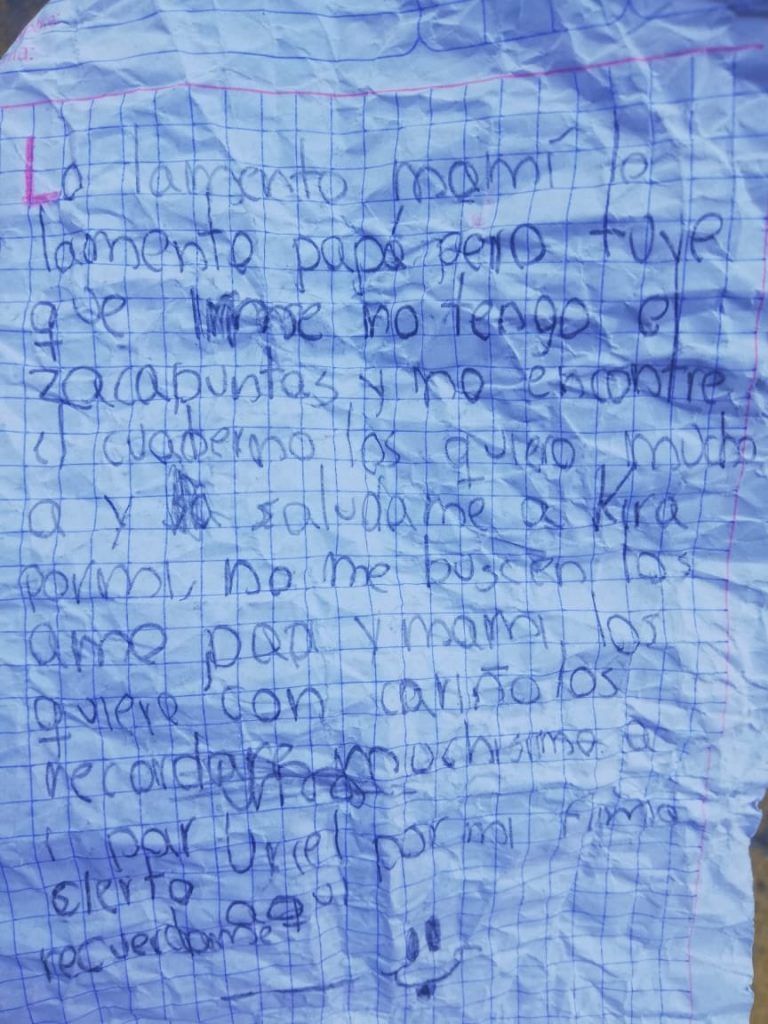 Lo lamento mamí lo
lamento papá pero tuve
que no tengo el
zacapuntas y no encontre
el cuaderno los quiero mucho
a y saludame a Kira
pormi, no me buscen los
ame papa y mama, los
quiere con cariño los
recordare muchisimo a
par Uriel por mi
cierto aqui
recuerdame